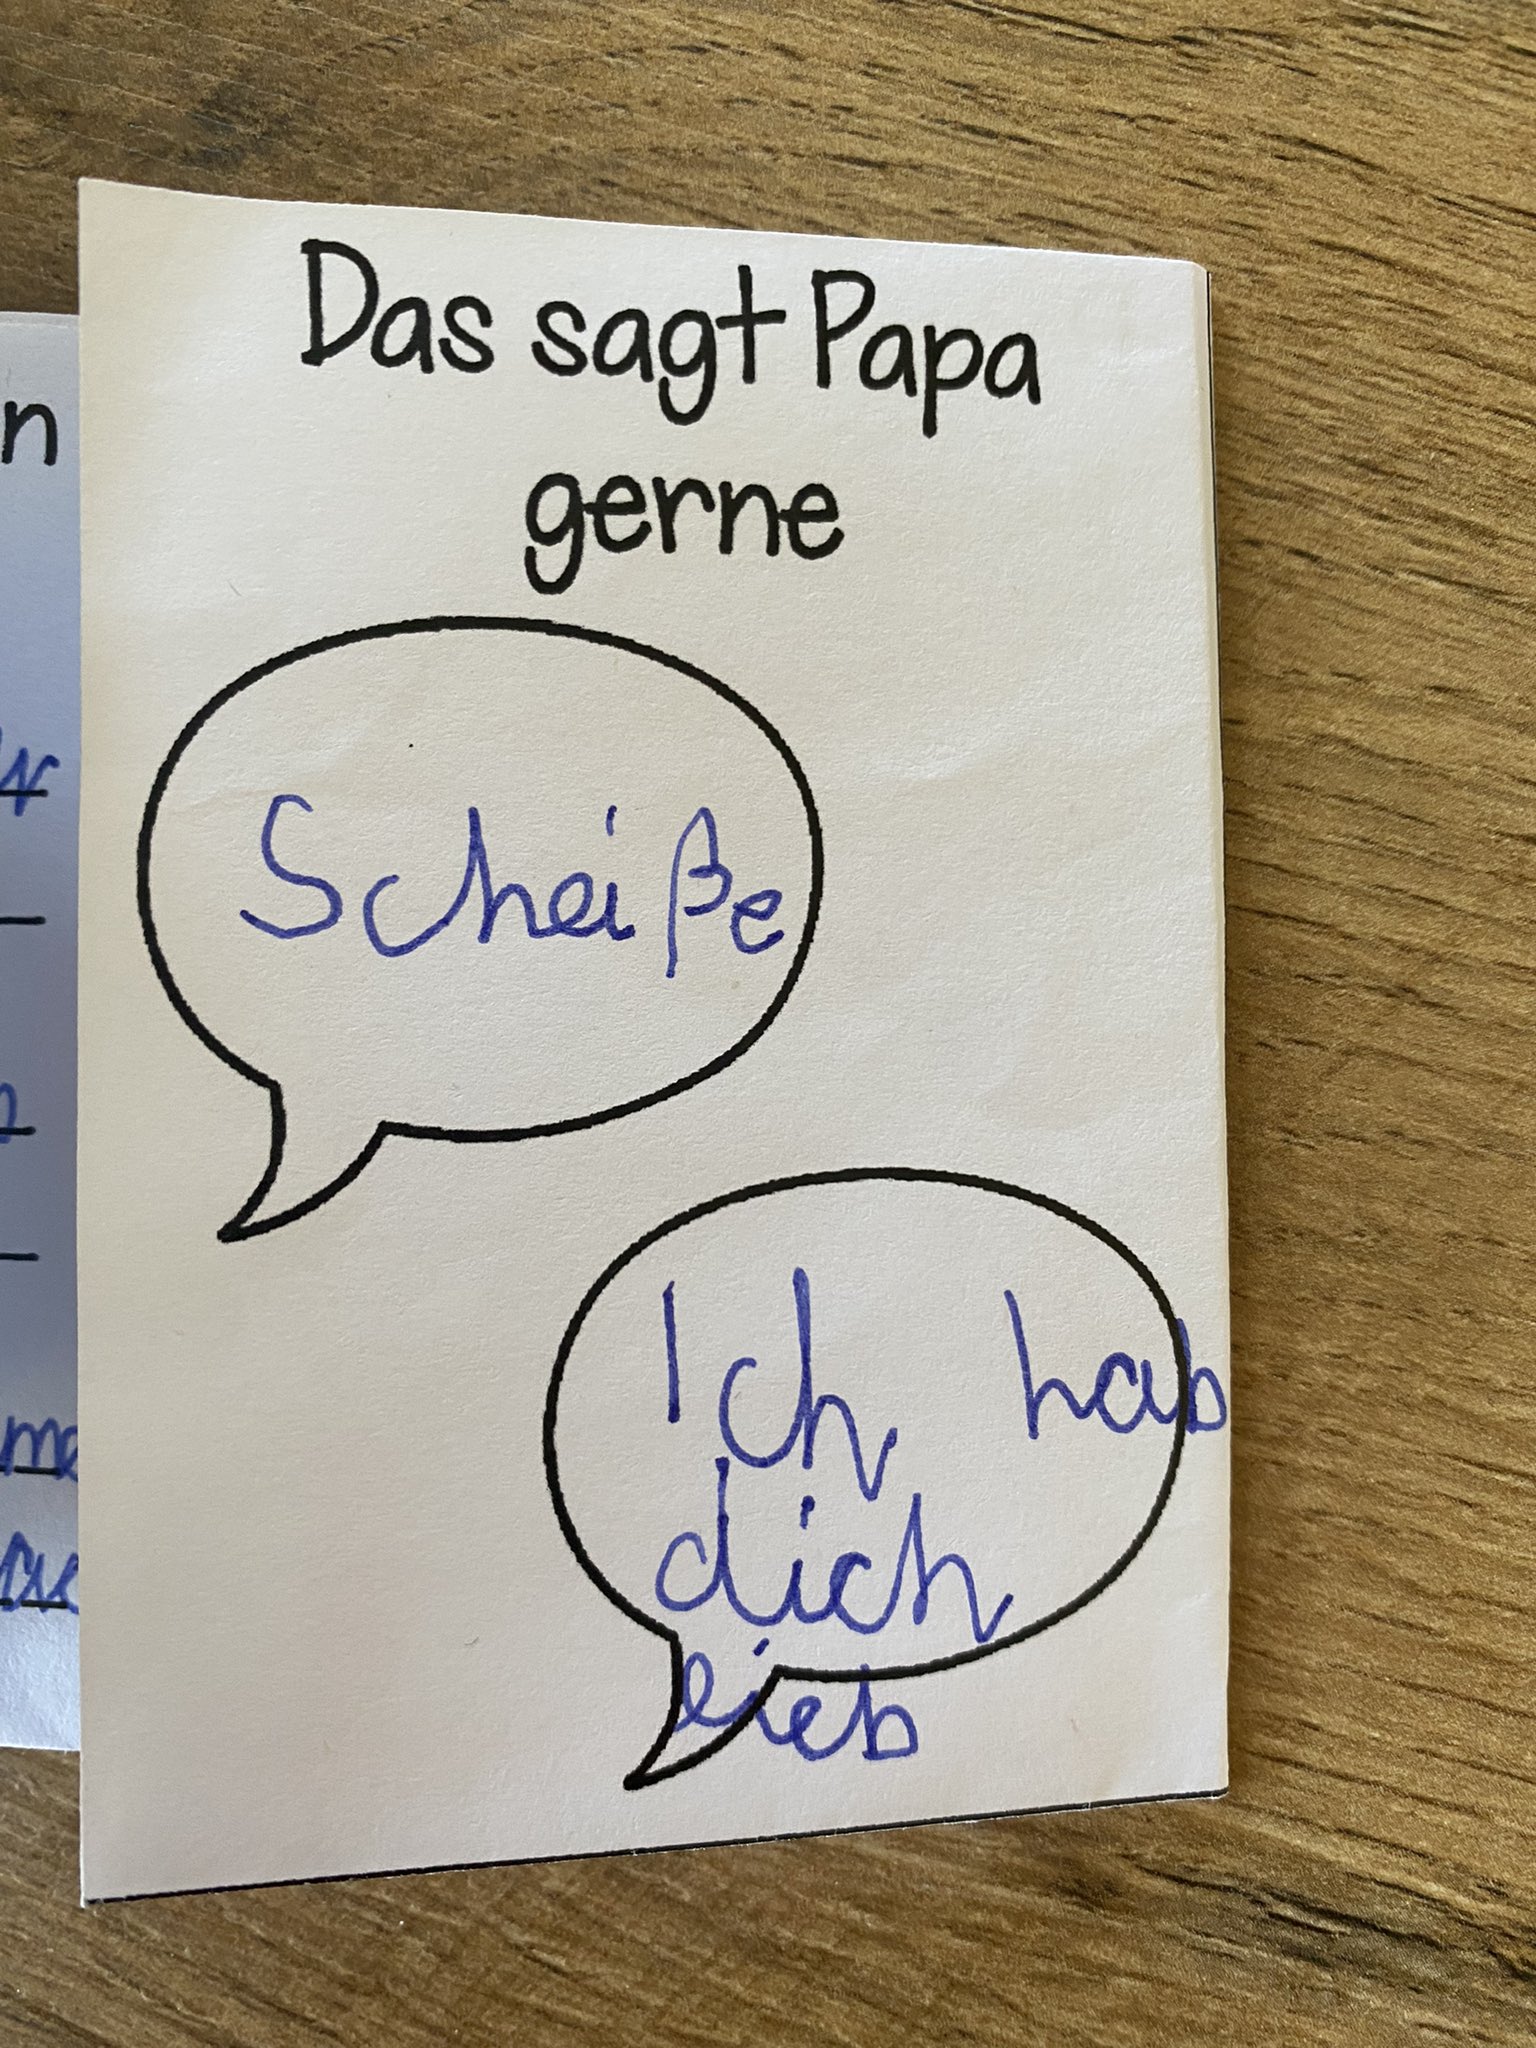 Das sagt Papa
gerne
Scheiße
Ich hab
dich
lieb
n